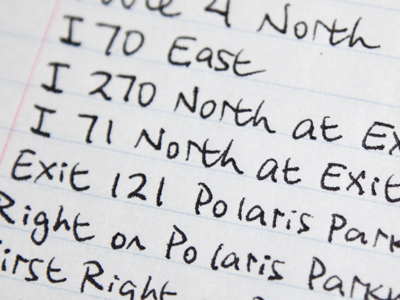 4 North
I 70 East
I 270 North at Ex
I 71 North at Exit
Exit 121 Polaris Park
Right on Polaris Parkw
irst Right